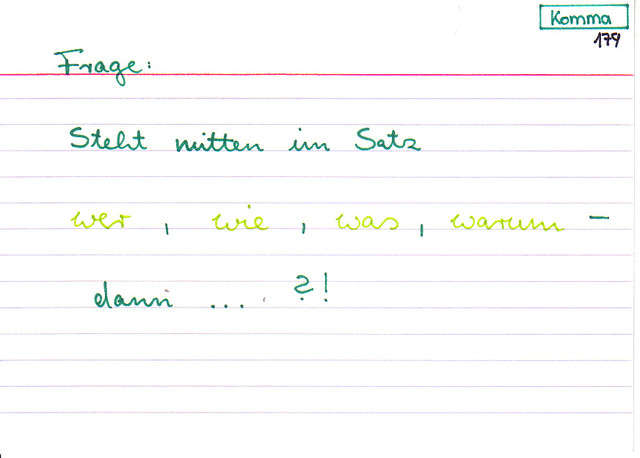 Komma
179
Frage:
Steht mitten im Satz
wer, wie, was, warum –
dann .... ?!